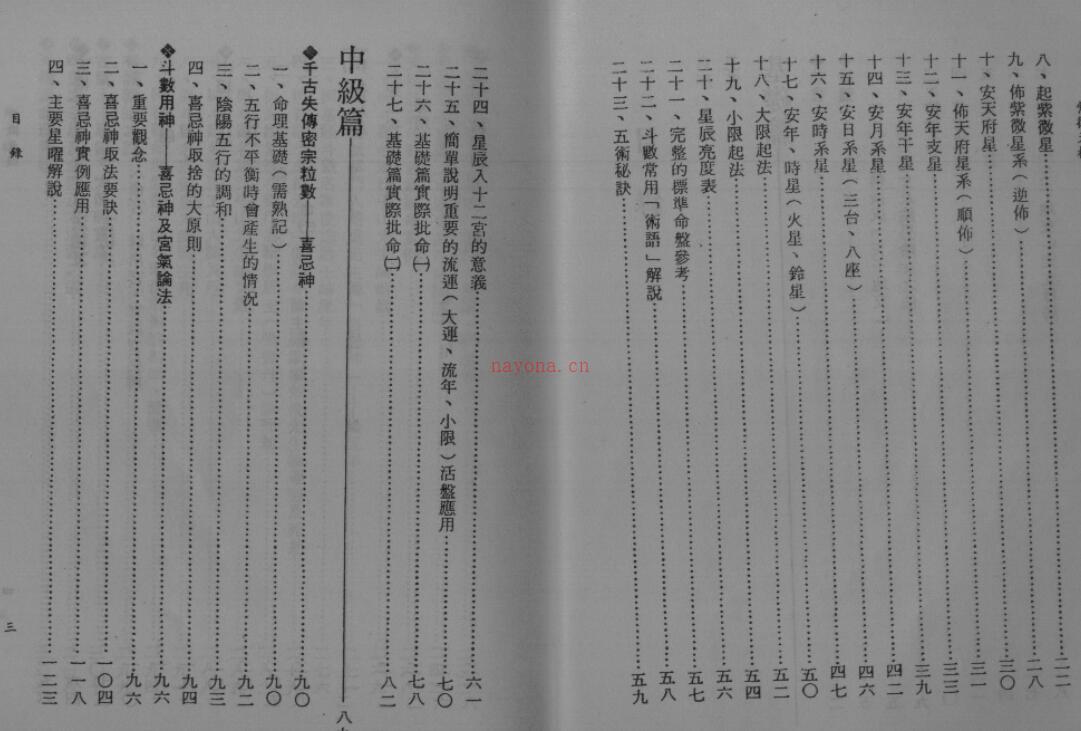 八、起紫微星……二二
九、佈紫微星系（逆佈）……二八
十、安天府星……三〇
十一、佈天府星系（順佈）……三一
十二、安年支星……三三
十三、安年干星……三九
十四、安月系星……四二
十五、安日系星（三台、八座）……四六
十六、安時系星……四七
十七、安年、時星（火星、鈴星）……五〇
十八、大限起法……五二
十九、小限起法……五四
二十、星辰亮度表……五六
二十一、完整的標準命盤參考……五七
二十二、斗數常用「術語」解說……五八
二十三、五術秘訣……五九
二十四、星辰入十二宮的意義……六一
二十五、簡單說明重要的流運（大運、流年、小限）活盤應用……七〇
二十六、基礎篇實際批命㈠……七八
二十七、基礎篇實際批命㈡……八二
中級篇
◆千古失傳密宗粒數——喜忌神……九〇
一、命理基礎（需熟記）……九〇
二、五行不平衡時會產生的情況……九二
三、陰陽五行的調和……九三
四、喜忌神取捨的大原則……九四
◆斗數用神——喜忌神及宮氣論法……九六
一、重要觀念……九六
二、喜忌神取法要訣……一〇四
三、喜忌神實例應用……一一八
四、主要星曜解說……一二三
目錄
三
nayona.cn